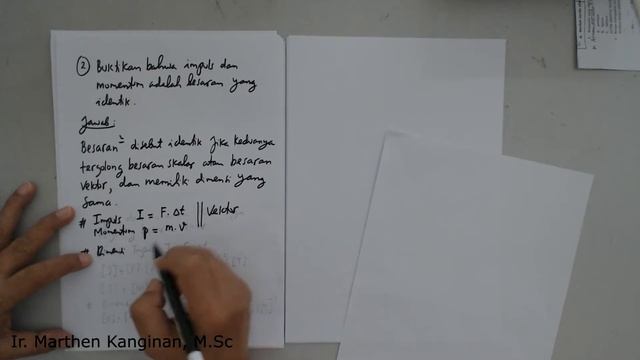 ② Buktikan bahwa impuls dan
momentum adalah besaran yang
identik.
Jawab:
Besaran² disebut identik jika keduanya
tergolong besaran skalar atau besaran
vektor, dan memiliki dimensi yang
sama.
# Impuls I = F. Δt || Vektor
Momentum p = m. v
# Dimensi
Ir. Marthen Kanginan, M.Sc